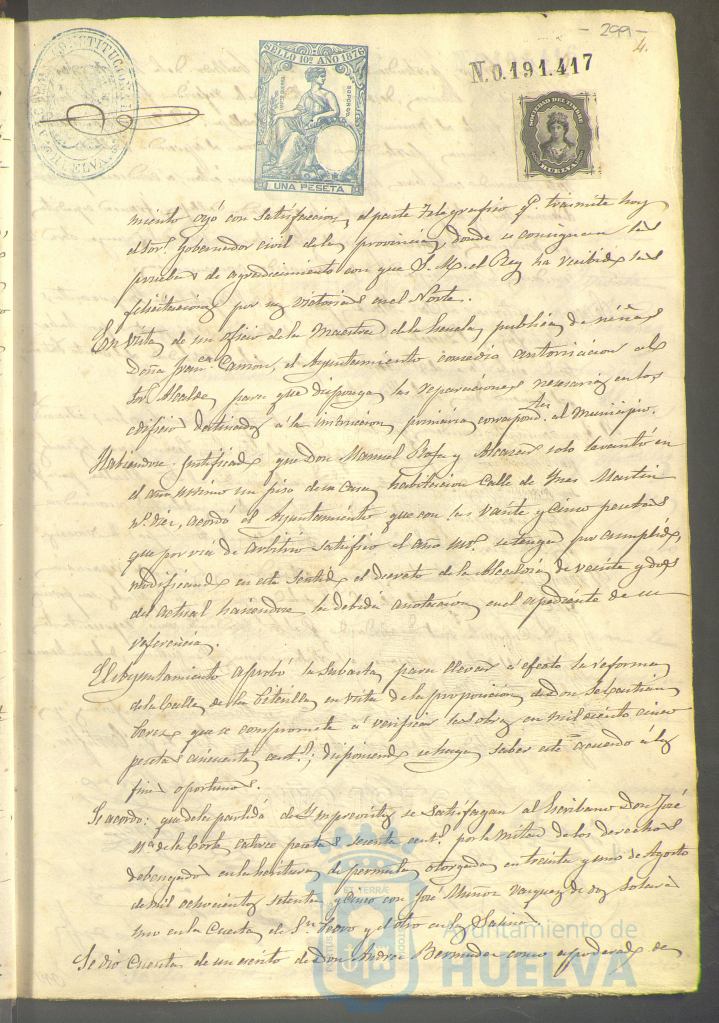 - 299 -
4.
N.0.191.417
AYUNTAMIENTO CONSTITUCIONAL DE HUELVA
SELLO 10º AÑO 1876
UNA PESETA
SOCIEDAD DEL TIMBRE
HUELVA
miento oyó con satisfaccion, el parte telegrafico q.e trasmite hoy
el Sor. Gobernador civil de la provincia, donde se consignan las
pruebas de agradecimiento con que S. M. el Rey ha recibido las
felicitaciones por las victorias en el Norte.
En vista de un oficio de la Maestra de la Escuela publica de niñas
Doña Fran.ca Carrion, el Ayuntamiento concedio autorizacion al
Sor. Alcalde, para que disponga las reparaciones necesarias en los
edificios destinados a la instruccion primaria correspond.tes al Municipio.
Habiendose justificado que Don Manuel Rofa y Alcazar solo levantó en
el año ultimo un piso de su casa habitacion Calle de Ynes Martin
nº. diez, acordó el Ayuntamiento que con las veinte y cinco pesetas
que por via de arbitrio satisfizo el año se tenga por cumplido,
modificando en este sentido el decreto de la Alcaldia de veinte y dos
del actual haciendose la debida anotacion en el expediente de su
referencia.
El Ayuntamiento aprobó la subasta para llevar a efecto la reforma
de la Calle de la en vista de la proposicion de Don Sebastian
que se compromete á verificar las obras en mil ciento cinco
pesetas cincuenta cent.s; disponiendo se haga saber este acuerdo á los
fines oportunos.
Se acordo: que de la partida de Ymprevistos se satisfagan al Escribano Don José
M.ª de la Corte catorce pesetas sesenta cent.s por la mitad de los derechos
debengados en la escritura de permuta otorgada en treinta y uno de Agosto
de mil ochocientos setenta y cinco con José Muñoz Vazquez de dos solares
uno en la Cuesta de S.n Pedro y el otro en
Se dio cuenta de un escrito de Don Andres Bermudez como apoderado de
Ayuntamiento de
HUELVA